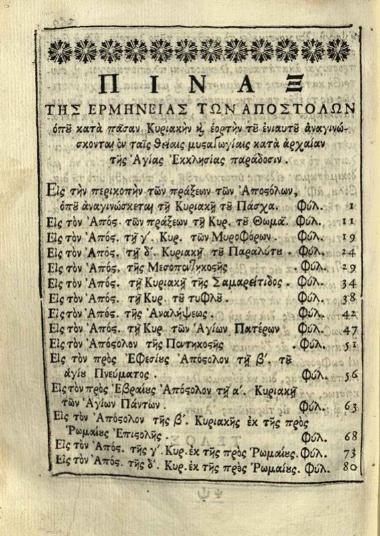 ΠΙΝΑΞ
ΤΗΣ ΕΡΜΗΝΕΙΑΣ ΤΩΝ ΑΠΟΣΤΟΛΩΝ
ὁπȣ κατὰ πᾶσαν Κυριακὴν ϗ̀ ἑορτὴν τȣ͂ ἐνιαυτȣ͂ ἀναγινώ-
σκονται ἐν ταῖς θείαις μυσαγωγίαις κατὰ ἀρχαίαν
τῆς Ἁγίας Ἐκκλησίας παράδοσιν.
Εἰς τὴν περικοπὴν τῶν πράξεων τῶν Ἀποςόλων,
ὁπȣ͂ ἀναγινώσκεται τῇ Κυριακῇ τȣ͂ Πάσχα. Φύλ. 1
Εἰς τὸν Ἀπός. τῶν πράξεων τῇ Κυρ. τȣ͂ Θωμᾶ. Φύλ. 11
Εἰς τὸν Ἀπός. τῇ γ΄. Κυρ. τῶν Μυροφόρων. Φύλ. 19
Εἰς τὸν Ἀπός. τῇ δ΄. Κυριακῇ τȣ͂ Παραλύτȣ. Φύλ. 24
Εἰς τὸν Ἀπός. τῆς Μεσοπεντηκοςῆς Φύλ. 29
Εἰς τὸν Ἀπός. τῇ Κυριακῇ τῆς Σαμαρείτιδος. Φύλ. 34
Εἰς τὸν Ἀπός. τῇ Κυρ. τȣ͂ τυφλȣ͂. Φύλ. 38
Εἰς τὸν Ἀπός. τῆς Ἀναλήψεως. Φύλ. 42
Εἰς τὸν Ἀπός. τῇ Κυρ. τῶν Ἁγίων Πατέρων Φύλ. 47
Εἰς τὸν Ἀπόςολον τῆς Πεντηκοςῆς Φύλ. 51
Εἰς τὸν πρὸς Ἐφεσίȣς Ἀπόςολον τῇ β΄. τȣ͂
ἁγίȣ Πνεύματος. Φύλ. 56
Εἰς τὸν πρὸς Ἑβραίȣς Ἀπόςολον τῇ α΄. Κυριακῇ
τῶν Ἁγίων Πάντων. Φύλ. 63
Εἰς τὸν Ἀπόςολον τῆς β΄. Κυριακῆς ἐκ τῆς πρὸς
Ῥωμαίȣς Ἐπιςολῆς. Φύλ. 68
Εἰς τὸν Ἀπός. τῆς γ΄. Κυρ. ἐκ τῆς πρὸς Ῥωμαίȣς. Φύλ. 73
Εἰς τὸν Ἀπός. τῆς δ΄. Κυρ. ἐκ τῆς πρὸς Ῥωμαίȣς. Φύλ. 80